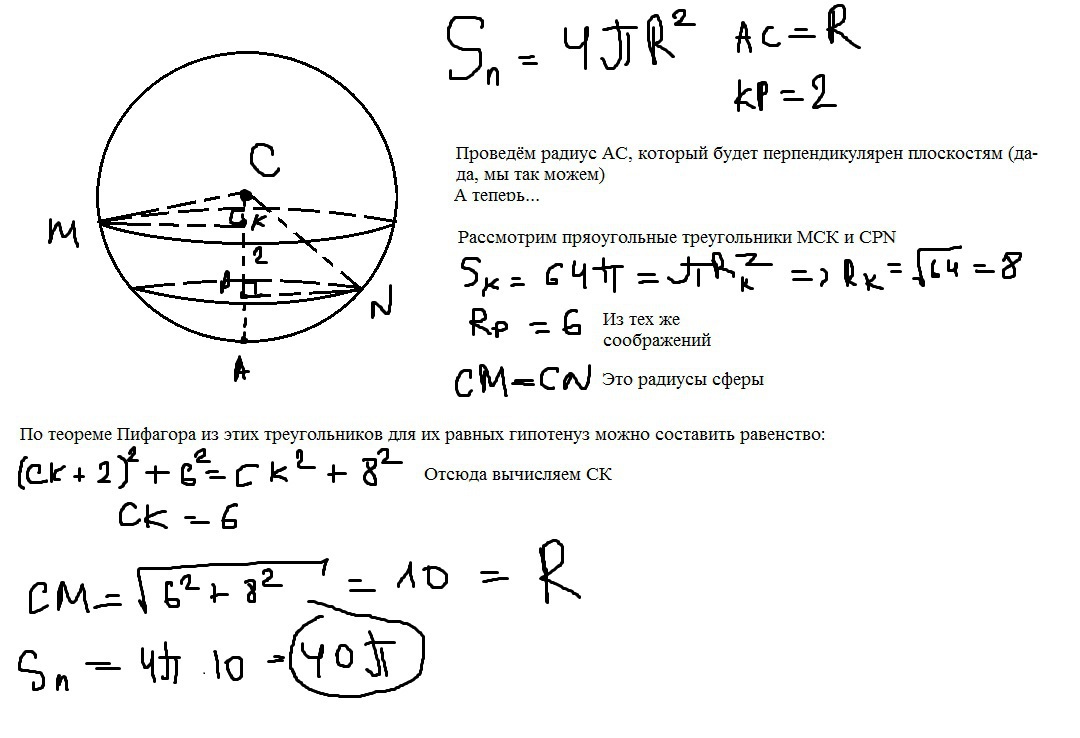 Sп = 4πR² AC = R
KP = 2
Проведём радиус АС, который будет перпендикулярен плоскостям (да-
да, мы так можем)
А теперь...
Рассмотрим пряоугольные треугольники МСК и CPN
Sк = 64π = πRк² => Rк = √64 = 8
Rр = 6 Из тех же
соображений
CM = CN Это радиусы сферы
C
M
K
2
P
N
A
По теореме Пифагора из этих треугольников для их равных гипотенуз можно составить равенство:
(CK + 2)² + 6² = CK² + 8² Отсюда вычисляем СК
CK = 6
CM = √6² + 8² = 10 = R
Sп = 4π · 10 = 40π